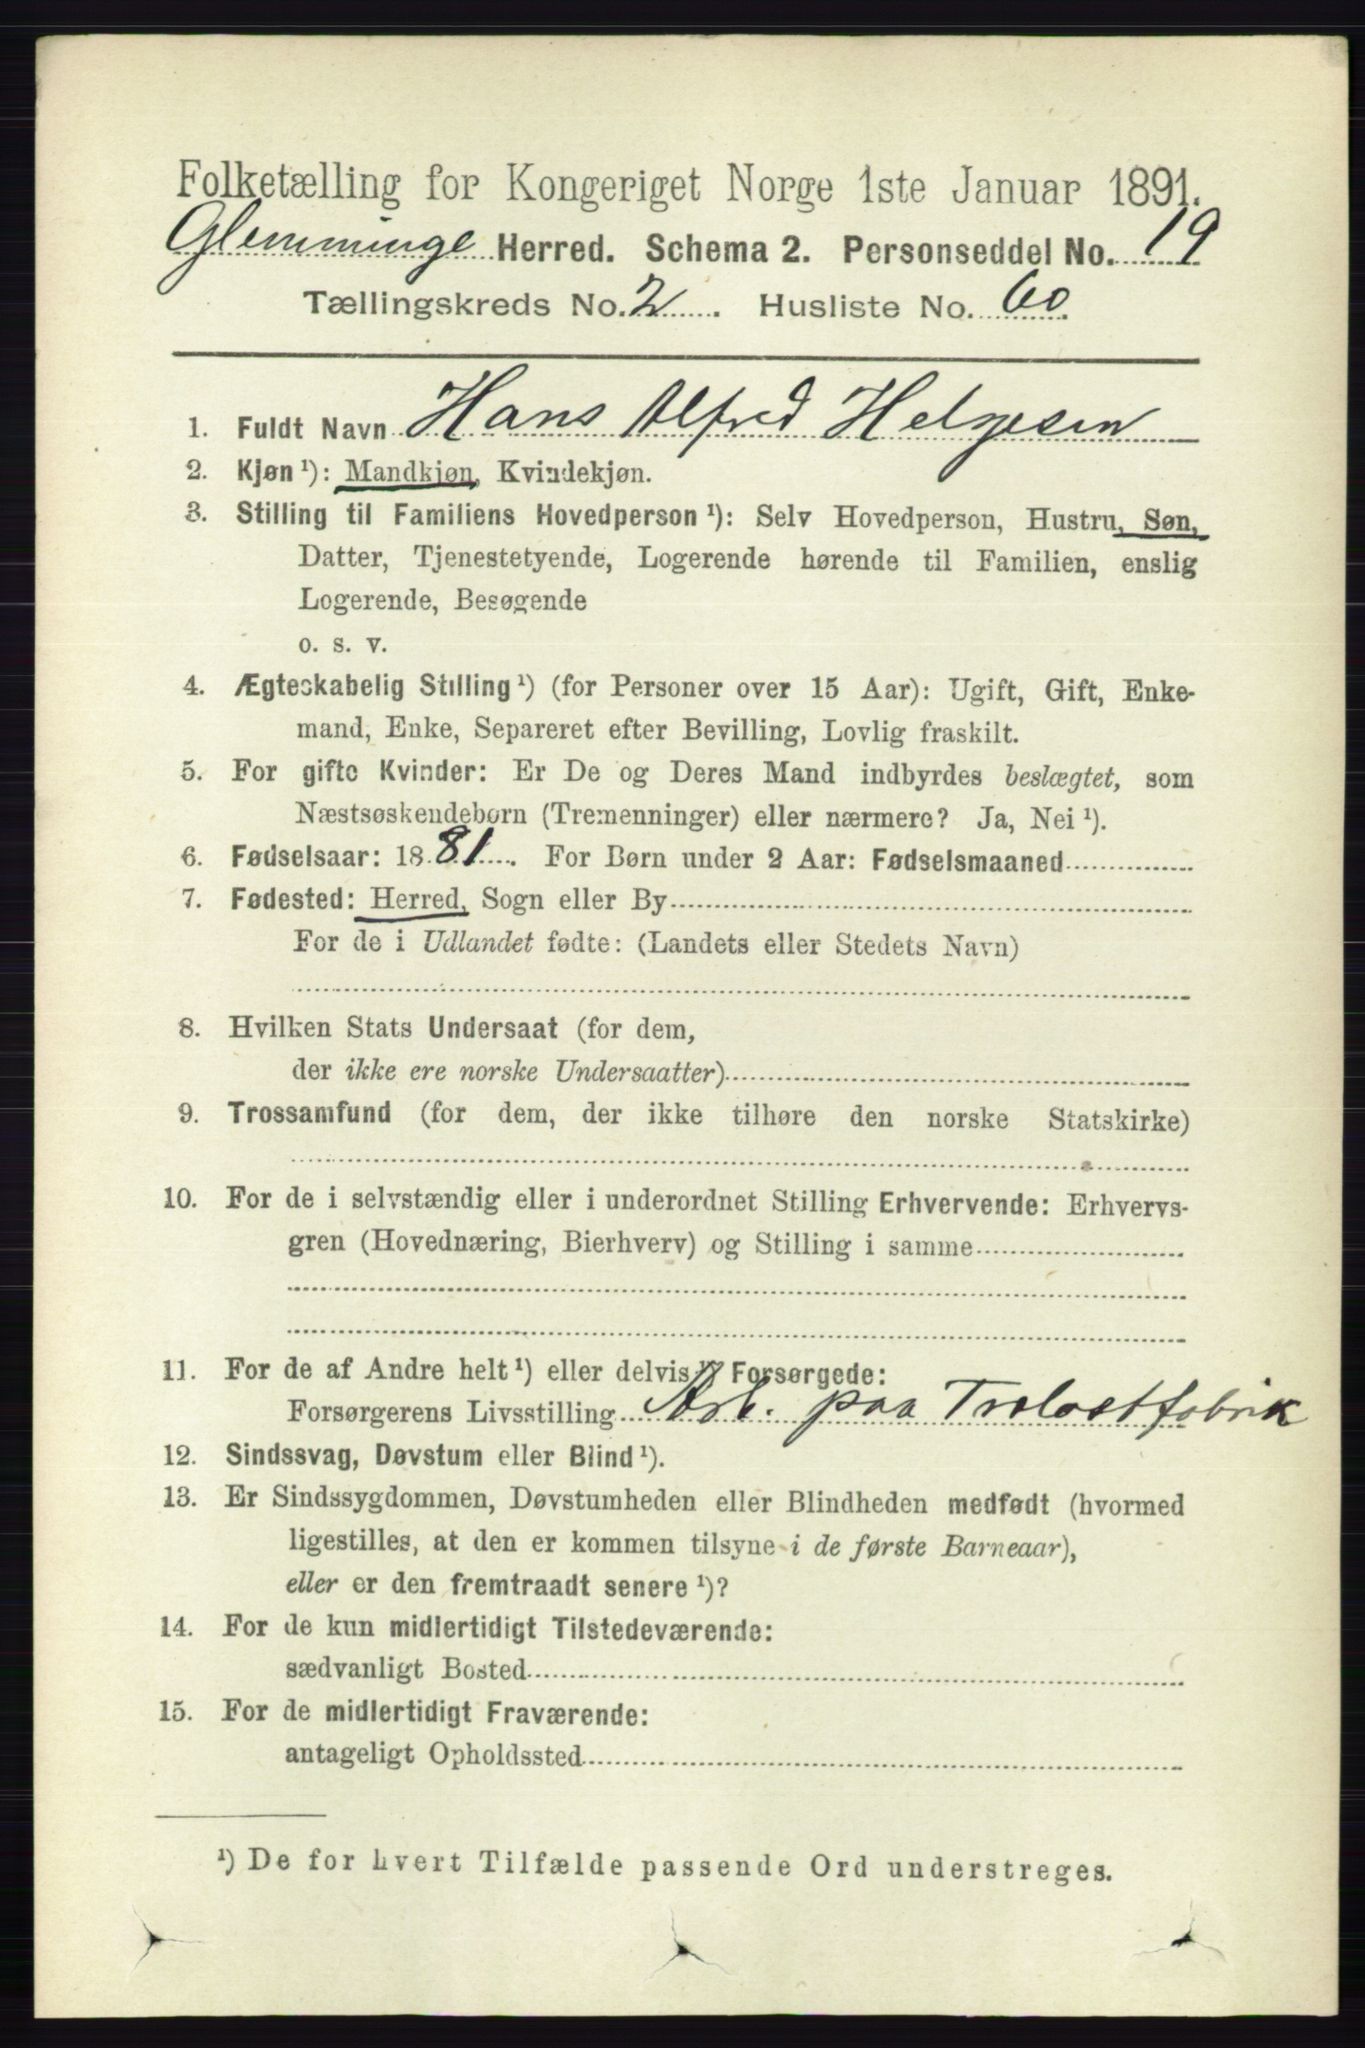 Folketælling for Kongeriget Norge 1ste Januar 1891.
Glemminge Herred. Schema 2. Personseddel No. 19
Tællingskreds No. 2. Husliste No. 60
1. Fuldt Navn Hans Alfred Helgesen
2. Kjøn ¹): Mandkjøn, Kvindekjøn.
3. Stilling til Familiens Hovedperson ¹): Selv Hovedperson, Hustru, Søn,
Datter, Tjenestetyende, Logerende hørende til Familien, enslig
Logerende, Besøgende
o. s. v.
4. Ægteskabelig Stilling ¹) (for Personer over 15 Aar): Ugift, Gift, Enke-
mand, Enke, Separeret efter Bevilling, Lovlig fraskilt.
5. For gifte Kvinder: Er De og Deres Mand indbyrdes beslægtet, som
Næstsøskendebørn (Tremenninger) eller nærmere? Ja, Nei ¹).
6. Fødselsaar: 1881. For Børn under 2 Aar: Fødselsmaaned
7. Fødested: Herred, Sogn eller By
For de i Udlandet fødte: (Landets eller Stedets Navn)
8. Hvilken Stats Undersaat (for dem,
der ikke ere norske Undersaatter)
9. Trossamfund (for dem, der ikke tilhøre den norske Statskirke)
10. For de i selvstændig eller i underordnet Stilling Erhvervende: Erhvervs-
gren (Hovednæring, Bierhverv) og Stilling i samme
11. For de af Andre helt ¹) eller delvis ¹) Forsørgede:
Forsørgerens Livsstilling Arb. paa Trelastfabrik
12. Sindssvag, Døvstum eller Blind ¹).
13. Er Sindssygdommen, Døvstumheden eller Blindheden medfødt (hvormed
ligestilles, at den er kommen tilsyne i de første Barneaar),
eller er den fremtraadt senere ¹)?
14. For de kun midlertidigt Tilstedeværende:
sædvanligt Bosted
15. For de midlertidigt Fraværende:
antageligt Opholdssted
¹) De for hvert Tilfælde passende Ord understreges.